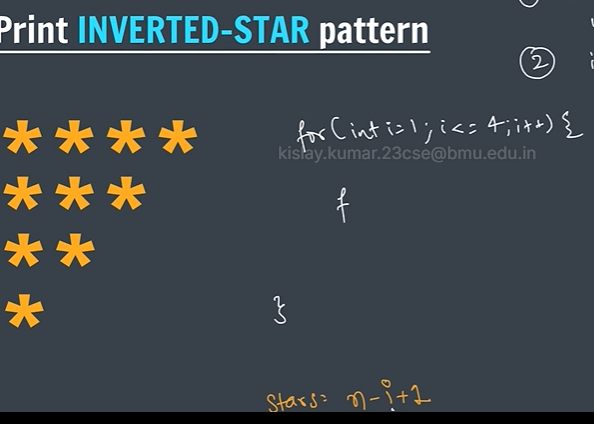 Print INVERTED-STAR pattern
2
* * * *
for(int i=1; i<=4; i++) {
kislay.kumar.23cse@bmu.edu.in
* * *
f
* *
*
}
stars= n-i+1